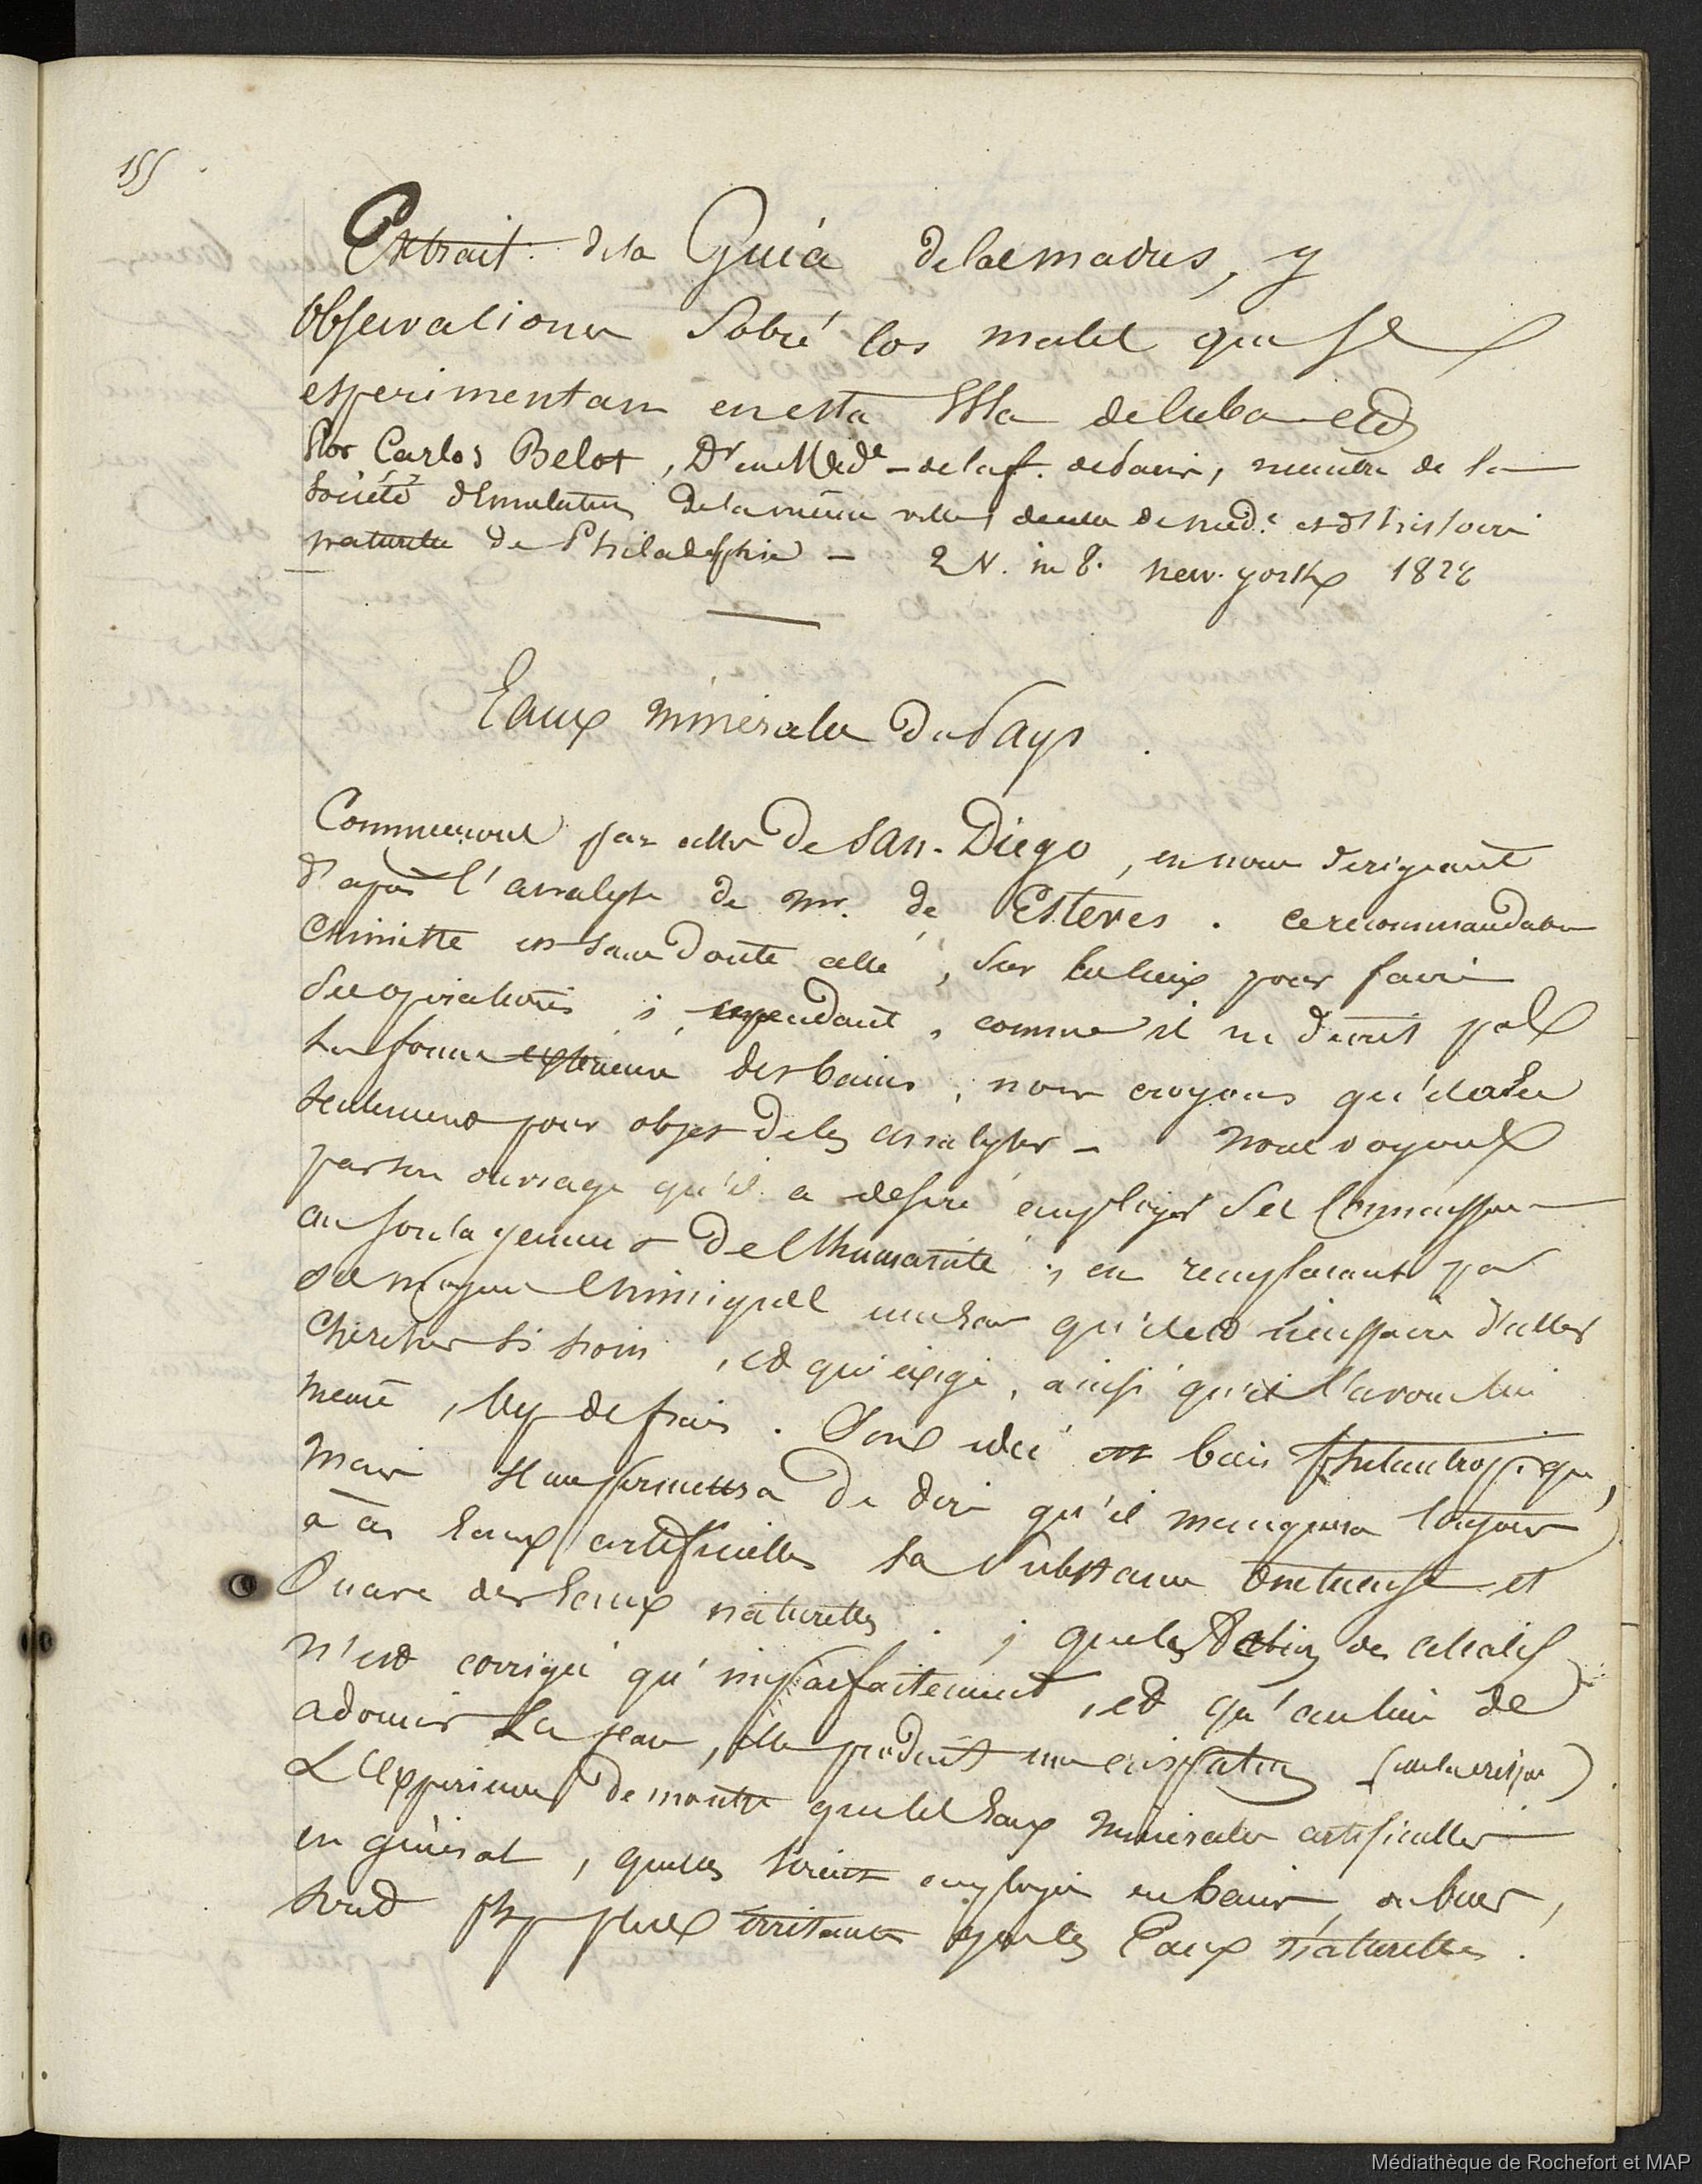 155
Extrait de la Guia de las madres, y
Observationes Sobré los males que se
esperimentan en esta Isla de Cuba etc
Por Carlos Belot, Dr en Méde - de la f. de Paris, membre de la
Société d'Emulation de la même ville, de celle de méd.e et d'histoire
naturelle de Philadelphie - 2 V. in 8. new. york 1828
Eaux minerales du Pays.
Commençons par celles de San-Diego, en nous dirigeant
d'après l'analyse de Mr. de Esteves. ce recommandable
Chimiste est sans doute allé, sur les lieux pour faire
ses opérations ; cependant, comme il ne decrit pas
la forme exterieure des bains, nous croyons qu'il a eu
seulement pour objet de les analyser - nous voyons
par son ouvrage qu'il a desiré employer ses Connaissances
au soulagement de l'humanité, en remplacant par
des moyens Chimiques qu'il est nécessaire d'aller
Chercher si loin, et qui exige, ainsi qu'il l'avoue lui
meme, de frais. Son idée est bien philantropique,
mais il me permettra de dire qu'il manquera toujours
à ces Eaux artificielles la substance onctueuse et
suave des Eaux naturelles ; que l'action des alcalis
n'est corrigée qu'imparfaitement, et qu'au lieu de
adoucir la peau, elle produit une crispation
L'Experience demontre que les Eaux minerales artificielles
en général, qu'elles soient employées en bains, ou bues,
sont plus irritantes que les Eaux naturelles.
Médiathèque de Rochefort et MAP